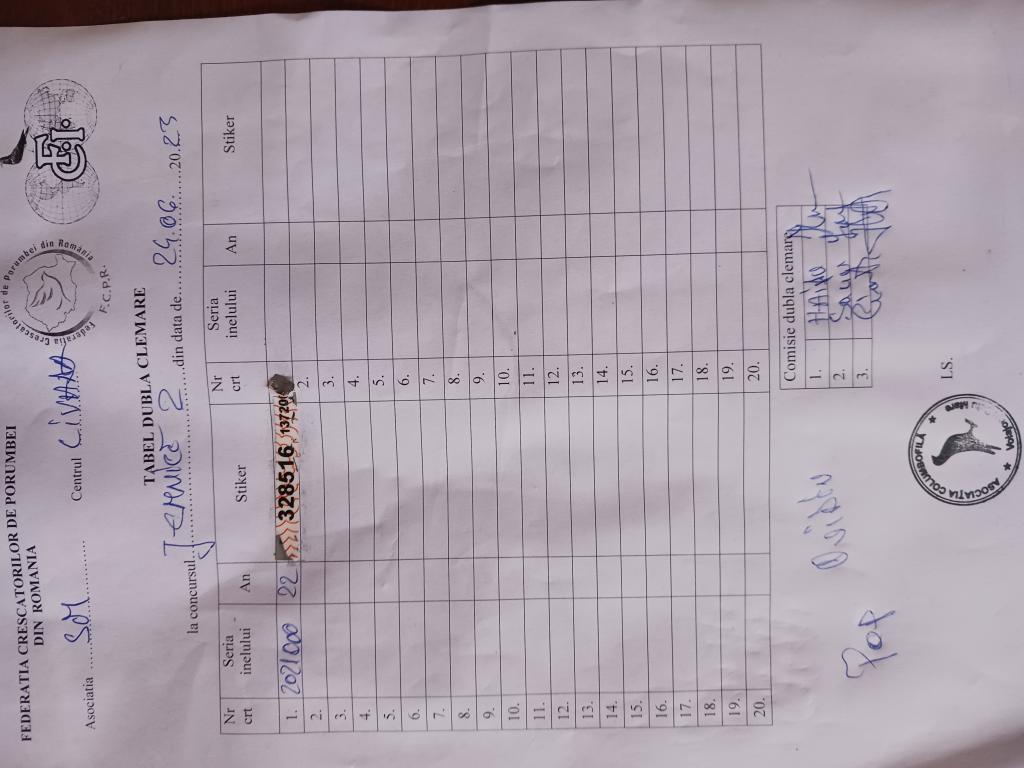 FEDERATIA CRESCATORILOR DE PORUMBEI
DIN ROMANIA
Federatia Crescatorilor de Porumbei din România
F.C.P.R.
Asociatia SM Centrul
TABEL DUBLA CLEMARE
la concursul 2 din data de 24.06. 2023
Nr crt Seria inelului An Stiker Nr crt Seria inelului An Stiker
1. 201000 22 328516
2. 2.
3. 3.
4. 4.
5. 5.
6. 6.
7. 7.
8. 8.
9. 9.
10. 10.
11. 11.
12. 12.
13. 13.
14. 14.
15. 15.
16. 16.
17. 17.
18. 18.
19. 19.
20. 20.
Comisie dubla clemare
1.
2.
3.
Pop Ovidiu
L.S.
ASOCIATIA COLUMBOFILA